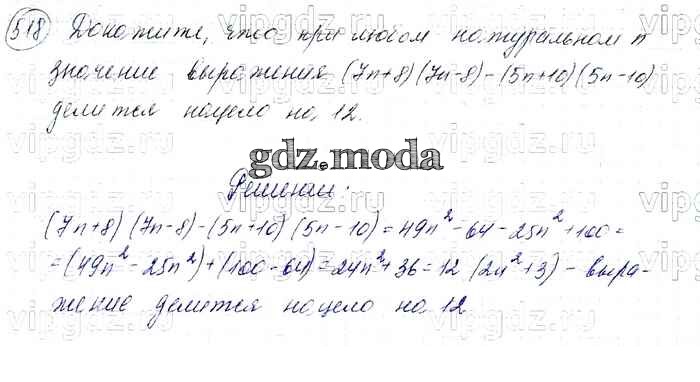 518 Докажите, что при любом натуральном n
значение выражения (7n+8)(7n-8)-(5n+10)(5n-10)
делится нацело на 12.
gdz.moda
Решение:
(7n+8)(7n-8)-(5n+10)(5n-10)=49n²-64-25n²+100=
=(49n²-25n²)+(100-64)=24n²+36=12(2n²+3) - выра-
жение делится нацело на 12
vipgdz.ru